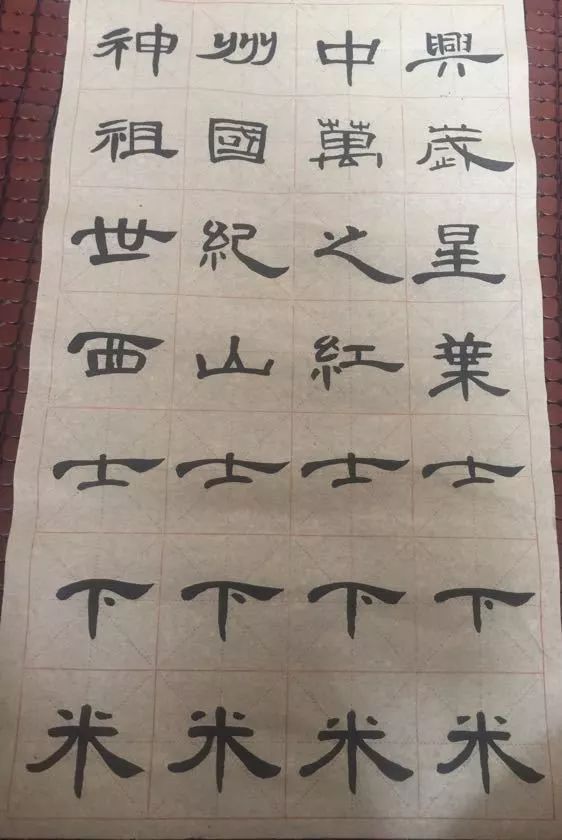 神州中興
祖國萬歲
世紀之星
西山紅葉
士士士士
下下下下
米米米米